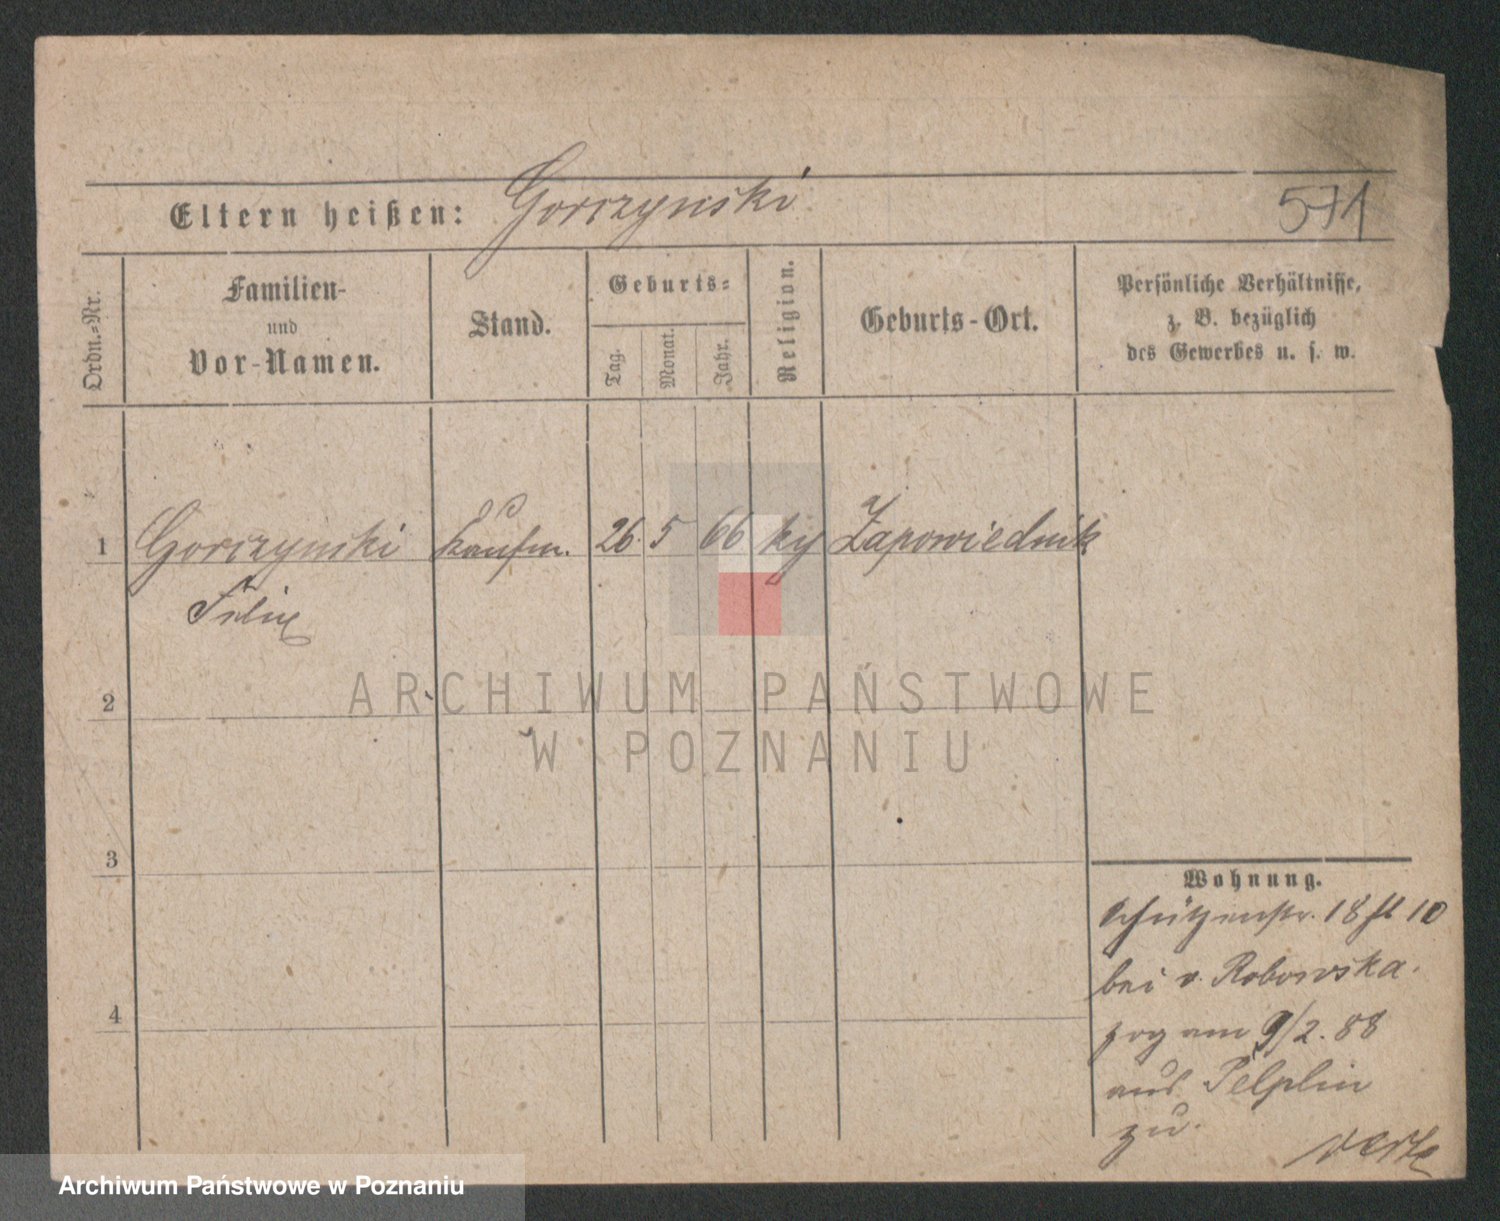 Eltern heißen: Gorczynski
571
Ordn.-Nr.
Familien-
und
Vor-Namen.
Stand.
Geburts-
Tag.
Monat.
Jahr.
Religion.
Geburts-Ort.
Persönliche Verhältnisse,
z. B. bezüglich
des Gewerbes u. s. w.
1 Gorczynski Kaufm. 26. 5 66 Zapowiednik
Felix
2
3
4
ARCHIWUM PAŃSTWOWE
W POZNANIU
Wohnung.
Schützenstr. 18 10
bei v. Robowska.
zog am 9/2. 88
aus Pelplin
zu.
verte
Archiwum Państwowe w Poznaniu